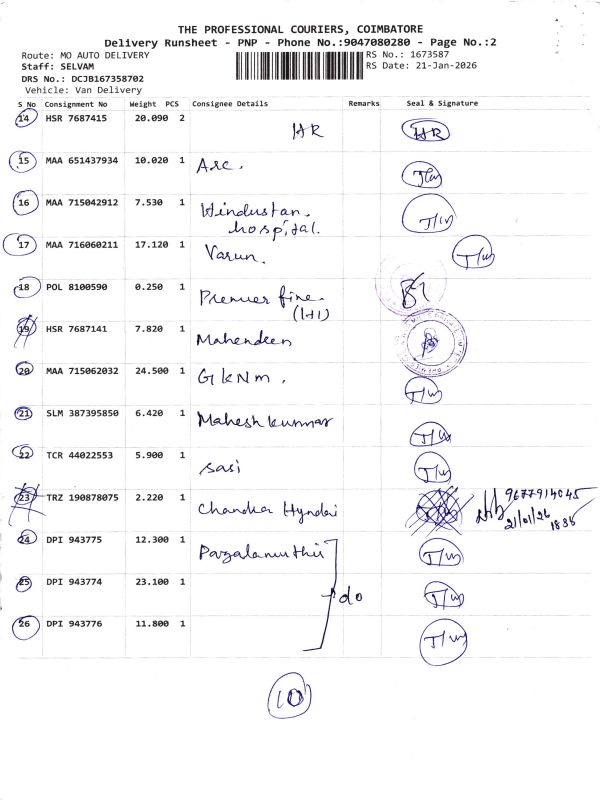 THE PROFESSIONAL COURIERS, COIMBATORE
Delivery Runsheet - PNP - Phone No.:9047080280 - Page No.:2
Route: MO AUTO DELIVERY RS No.: 1673587
Staff: SELVAM RS Date: 21-Jan-2026
DRS No.: DCJB167358702
Vehicle: Van Delivery
S No Consignment No Weight PCS Consignee Details Remarks Seal & Signature
14 HSR 7687415 20.090 2 HR HR
15 MAA 651437934 10.020 1 Arc.
16 MAA 715042912 7.530 1 Hindustan. T/w
hospital.
17 MAA 716060211 17.120 1 Varun. T/w
18 POL 8100590 0.250 1 Premier fine.
19 HSR 7687141 7.820 1 Mahendeen
20 MAA 715062032 24.500 1 GKNM. T/w
21 SLM 387395850 6.420 1 Mahesh kummar T/w
22 TCR 44022553 5.900 1 sasi T/w
23 TRZ 190878075 2.220 1 Chandra Hyndai 9677914045
21/01/26 1835
24 DPI 943775 12.300 1 Pazalamuthir T/w
25 DPI 943774 23.100 1 do T/w
26 DPI 943776 11.800 1 T/w
10